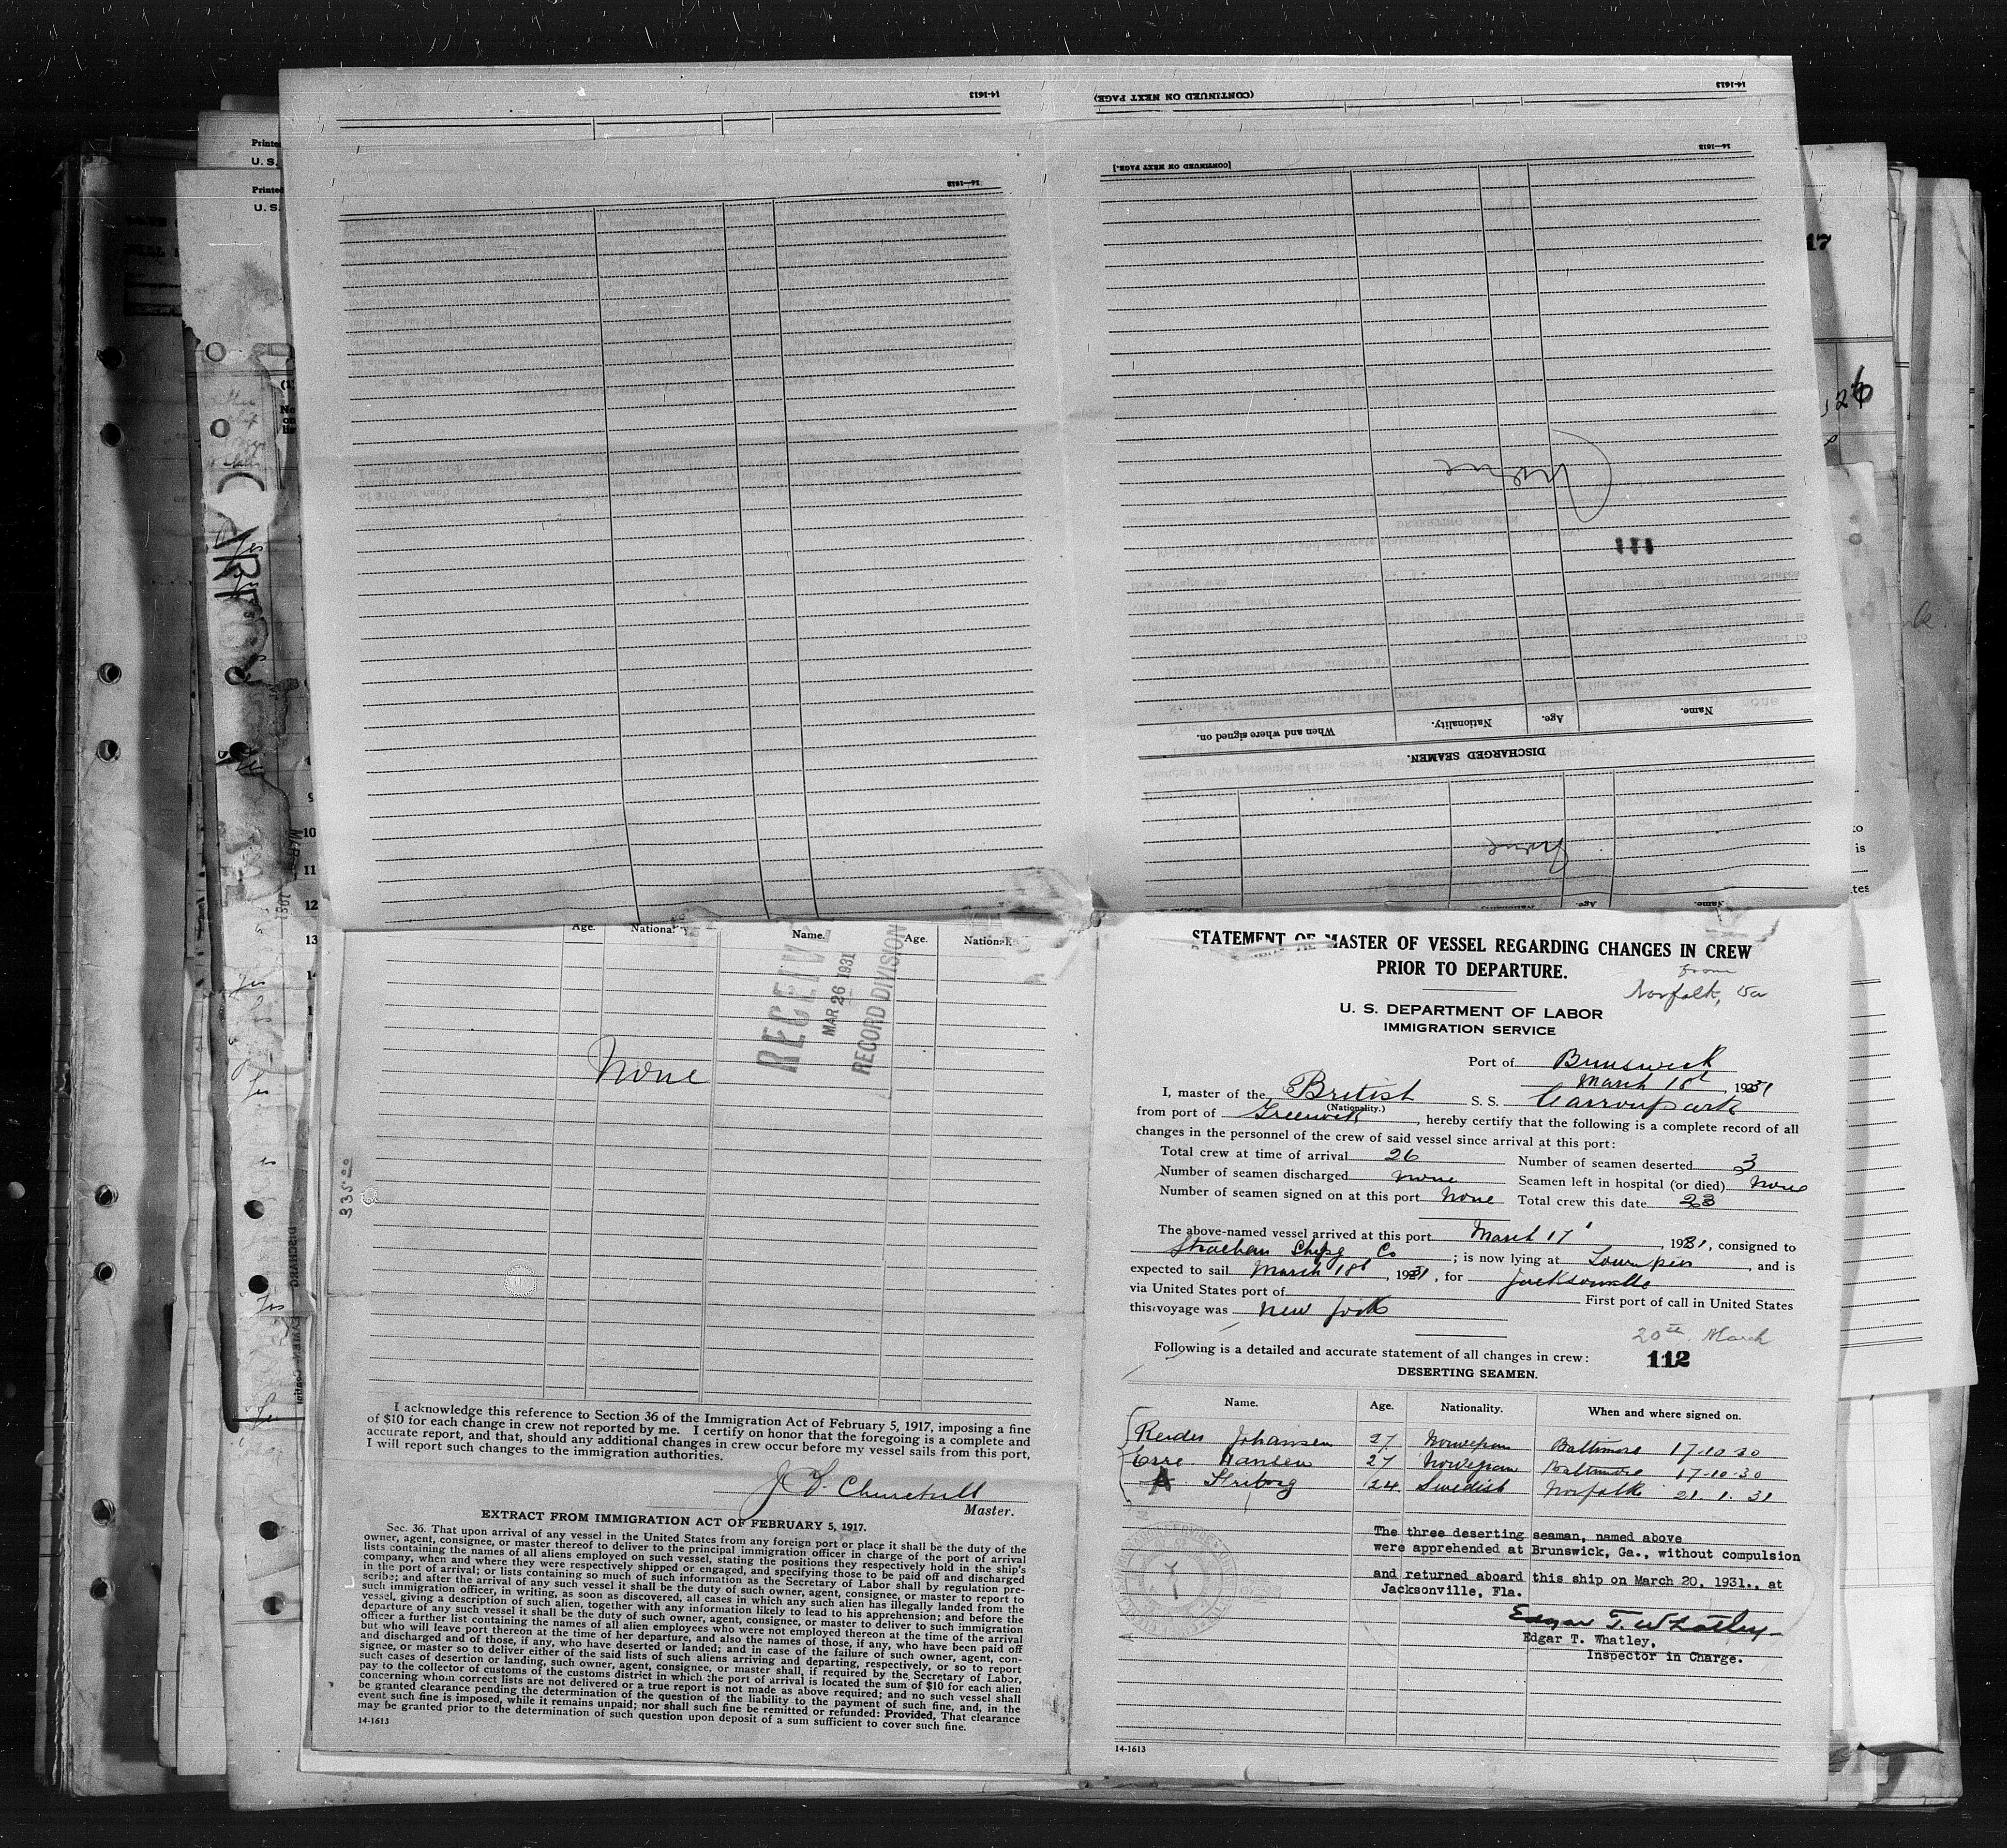 14-1613
(CONTINUED ON NEXT PAGE)
14-1613
14—1613
[CONTINUED ON NEXT PAGE.]
14—1613
None
When and where signed on.
Nationality.
Age.
Name.
DISCHARGED SEAMEN.
None
Name.
Age.
Age.
Name.
Age.
RECEIVED
MAR 26 1931
RECORD DIVISION
None
335.00
I acknowledge this reference to Section 36 of the Immigration Act of February 5, 1917, imposing a fine
of $10 for each change in crew not reported by me. I certify on honor that the foregoing is a complete and
accurate report, and that, should any additional changes in crew occur before my vessel sails from this port,
I will report such changes to the immigration authorities.
Churchill
Master.
EXTRACT FROM IMMIGRATION ACT OF FEBRUARY 5, 1917.
Sec. 36. That upon arrival of any vessel in the United States from any foreign port or place it shall be the duty of the
owner, agent, consignee, or master thereof to deliver to the principal immigration officer in charge of the port of arrival
lists containing the names of all aliens employed on such vessel, stating the positions they respectively hold in the ship's
company, when and where they were respectively shipped or engaged, and specifying those to be paid off and discharged
in the port of arrival; or lists containing so much of such information as the Secretary of Labor shall by regulation pre-
scribe; and after the arrival of any such vessel it shall be the duty of such owner, agent, consignee, or master to report to
such immigration officer, in writing, as soon as discovered, all cases in which any such alien has illegally landed from the
vessel, giving a description of such alien, together with any information likely to lead to his apprehension; and before the
departure of any such vessel it shall be the duty of such owner, agent, consignee, or master to deliver to such immigration
officer a further list containing the names of all alien employees who were not employed thereon at the time of the arrival
but who will leave port thereon at the time of her departure, and also the names of those, if any, who have been paid off
and discharged and of those, if any, who have deserted or landed; and in case of the failure of such owner, agent, con-
signee, or master so to deliver either of the said lists of such aliens arriving and departing, respectively, or so to report
such cases of desertion or landing, such owner, agent, consignee, or master shall, if required by the Secretary of Labor,
pay to the collector of customs of the customs district in which the port of arrival is located the sum of $10 for each alien
concerning whom correct lists are not delivered or a true report is not made as above required; and no such vessel shall
be granted clearance pending the determination of the question of the liability to the payment of such fine, and, in the
event such fine is imposed, while it remains unpaid; nor shall such fine be remitted or refunded: Provided, That clearance
may be granted prior to the determination of such question upon deposit of a sum sufficient to cover such fine.
14-1613
STATEMENT OF MASTER OF VESSEL REGARDING CHANGES IN CREW
PRIOR TO DEPARTURE.
from
Norfolk, Va
U. S. DEPARTMENT OF LABOR
IMMIGRATION SERVICE
Port of Brunswick
March 18th, 1931
I, master of the British S. S. Carronpark
(Nationality.)
from port of Greenwich, hereby certify that the following is a complete record of all
changes in the personnel of the crew of said vessel since arrival at this port:
Total crew at time of arrival 26 Number of seamen deserted 3
Number of seamen discharged None Seamen left in hospital (or died) None
Number of seamen signed on at this port None Total crew this date 23
The above-named vessel arrived at this port March 17, 1931, consigned to
Strachan Shipg Co; is now lying at Town pier, and is
expected to sail March 18th, 1931, for Jacksonville
via United States port of First port of call in United States
this voyage was New York
20th March
Following is a detailed and accurate statement of all changes in crew: 112
DESERTING SEAMEN.
Name. Age. Nationality. When and where signed on.
Johansen 27 Norwegian Baltimore 17-10-30
Hansen 27 Norwegian Baltimore 17-10-30
A 24 Swedish Norfolk 21.1.31
The three deserting seaman, named above
were apprehended at Brunswick, Ga., without compulsion
and returned aboard this ship on March 20, 1931., at
Jacksonville, Fla.
Edgar T. Whatley
Edgar T. Whatley,
Inspector in Charge.
14-1613